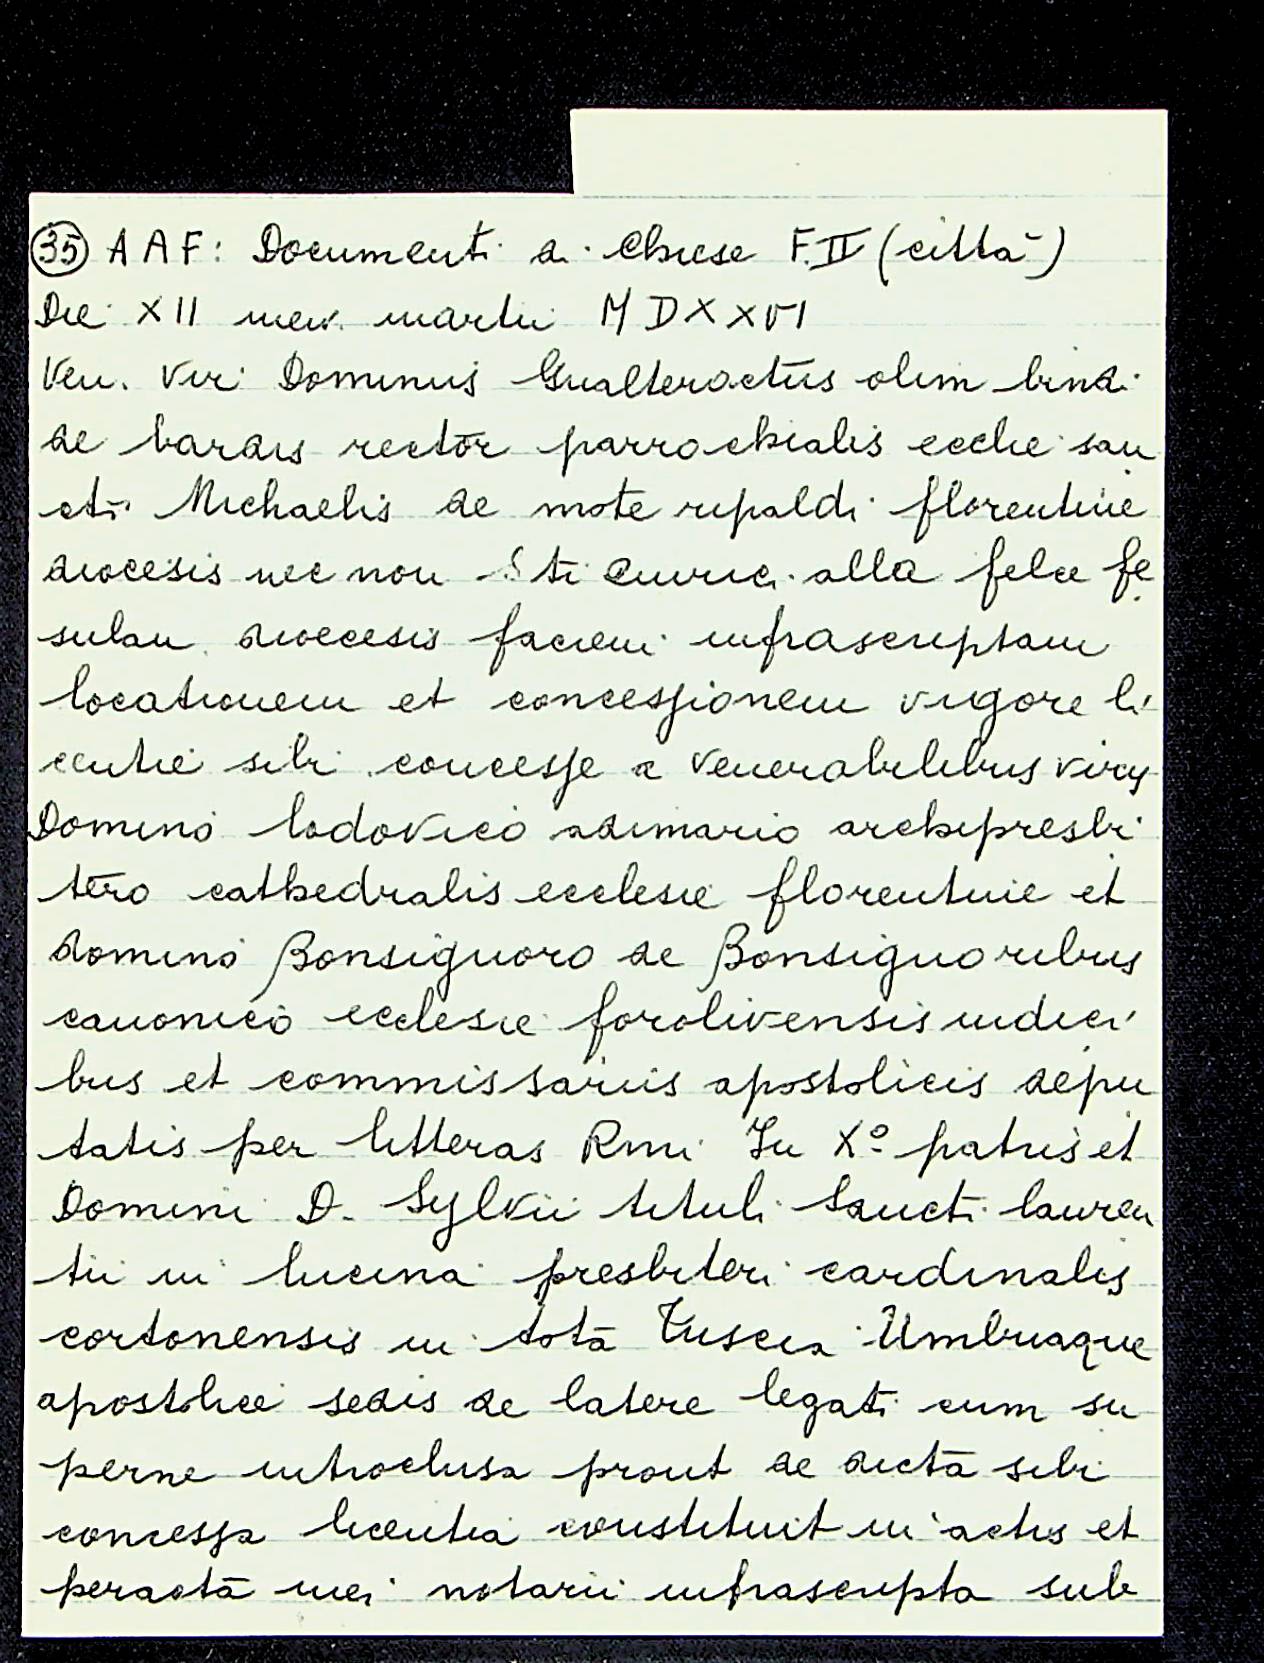 35 AAF: Documenti di Chiese F. II (città)
Die XII men. martii MDXXVI
Ven. Vir Dominus Gualteroctus olim bindi
de bardis rector parrochialis ecclie san
cti Michaelis de mote ripaldi florentine
diocesis nec non Sti alla felce fe
sulan diocesis faciem infrascriptam
locationem et concessionem vigore li
centie sibi concesse a Venerabilibus viris
Domino lodovico adimario archipresbi
tero cathedralis ecclesie florentine et
domino Bonsignoro de Bonsignoribus
canonico ecclesie forolivensis iudici
bus et commissariis apostolicis depu
tatis per litteras Rmi In Xº patris et
Domini D. Sylvii tituli Sancti lauren
tii in lucina presbiteri cardinalis
cortonensis in totā Tuscia Umbriaque
apostolice sedis de latere legati cum su
perne introclusa prout de dictā sibi
concessa licentia constituit in actis et
peractā mei notarii infrascripta sub